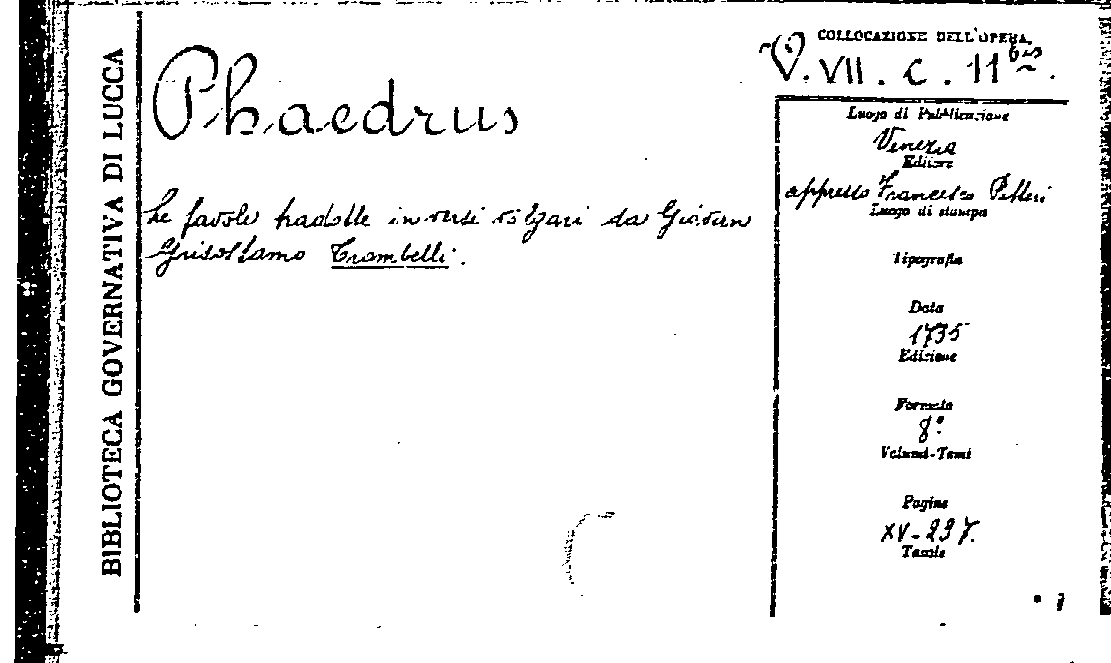 BIBLIOTECA GOVERNATIVA DI LUCCA
Phaedrus
Le favole tradotte in versi volgari da Giovan
Grisostamo Trambelli.
COLLOCAZIONE DELL'OPERA
V. VII. C. 11 bis.
Luogo di Pubblicazione
Venezia
Editore
appresso Francesco Pitteri
Luogo di stampa
Tipografia
Data
1735
Edizione
Formato
8°
Volumi-Tomi
Pagine
XV-237.
Tavole